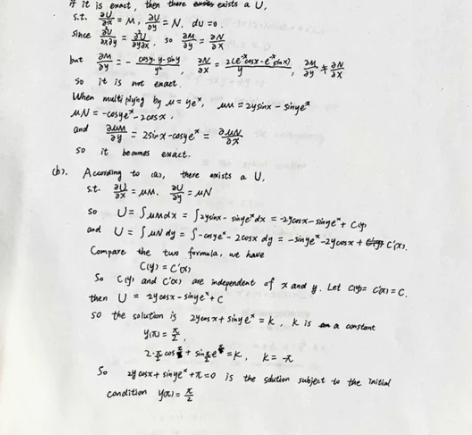 if it is exact, then there exists a U,
s.t. ∂U/∂x = M, ∂U/∂y = N, dU = 0.
Since ∂²U/∂x∂y = ∂²U/∂y∂x, so ∂M/∂y = ∂N/∂x
but ∂M/∂y = - (cosy·y-siny)/y² , ∂N/∂x = /y , ∂M/∂y ≠ ∂N/∂x
so it is not exact.
When multiplying by μ = ye^x, μM = 2ysinx - sinye^x
μN = -cosye^x - 2cosx,
and ∂μM/∂y = 2sinx - cosye^x = ∂μN/∂x
so it becomes exact.
(b). According to (a), there exists a U,
s.t. ∂U/∂x = μM. ∂U/∂y = μN
so U = ∫μM dx = ∫2ysinx - sinye^x dx = -2ycosx - sinye^x + C(y)
and U = ∫μN dy = ∫-cosye^x - 2cosx dy = -sinye^x - 2ycosx + C'(x).
Compare the two formula, we have
C(y) = C'(x)
So C(y) and C'(x) are independent of x and y. Let C(y) = C'(x) = C.
then U = 2ycosx - sinye^x + C
so the solution is 2ycosx + sinye^x = k, k is a constant
y(0) = π/2,
2·π/2 cos + sin = k, k = -π
So 2ycosx + sinye^x + π = 0 is the solution subject to the initial
condition y(0) = π/2